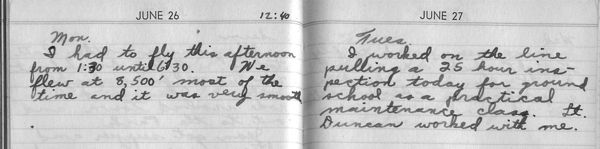 JUNE 26 12:40
Mon.
I had to fly this afternoon
from 1:30 until 6:30. We
flew at 8,500' most of the
time and it was very smooth
JUNE 27
Tues.
I worked on the line
pulling a 25 hour ins-
pection today for ground
school as a practical
maintenance class. Lt.
Duncan worked with me.